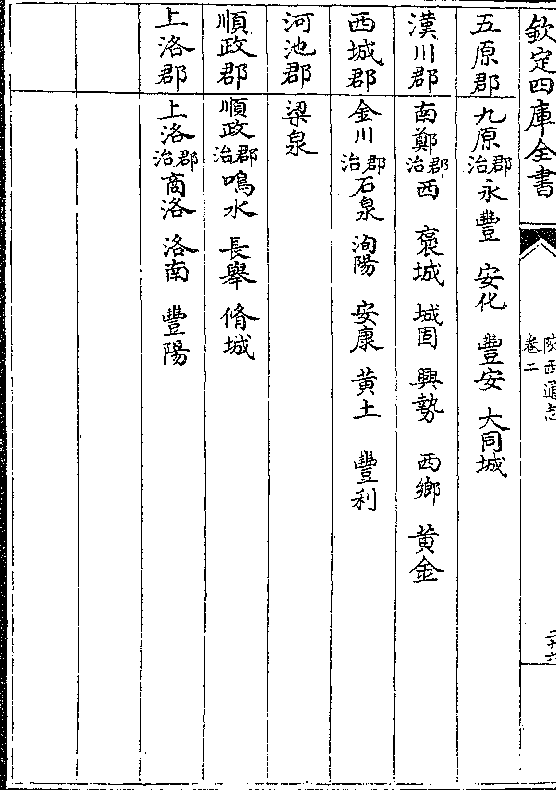 欽定四庫全書
陜西通志
卷二
五原郡 九原郡治 永豐 安化 豐安 大同城
漢川郡 南鄭郡治 西 褒城 城固 興勢 西鄉 黃金
西城郡 金川郡治 石泉 洵陽 安康 黃土 豐利
河池郡 梁泉
順政郡 順政郡治 鳴水 長舉 脩城
上洛郡 上洛郡治 商洛 洛南 豐陽